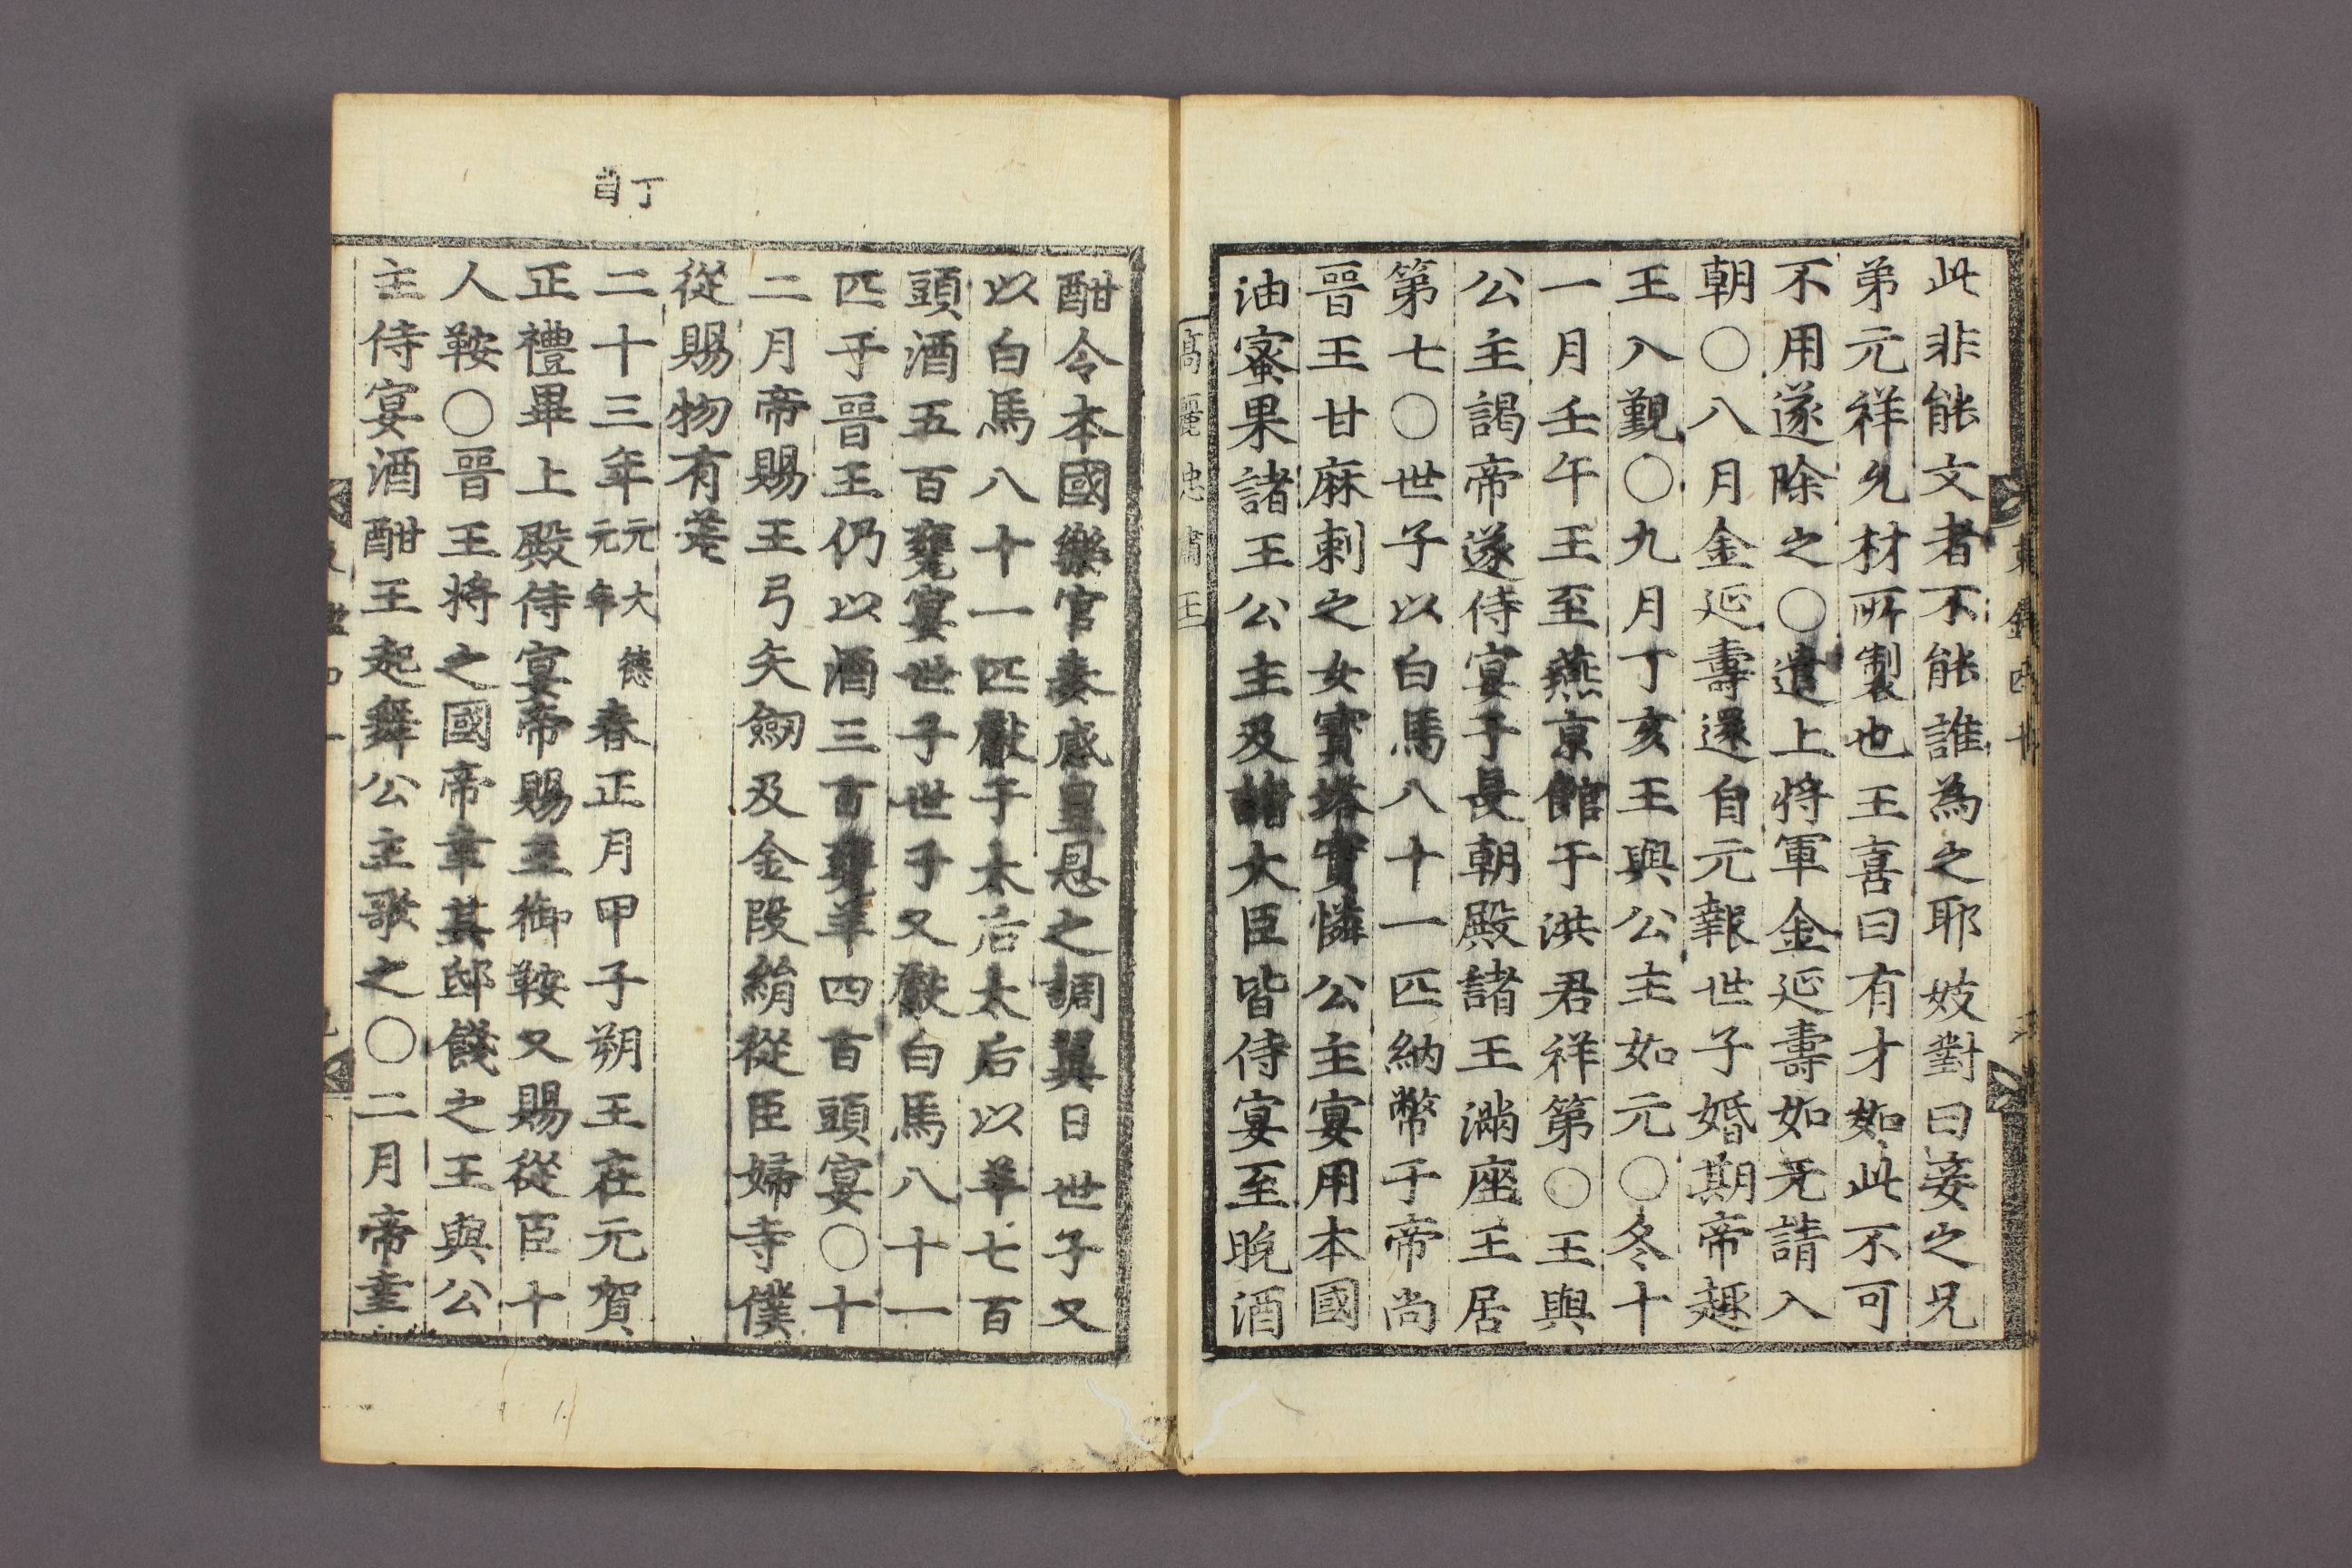 此非能文者不能誰為之耶妓對曰妾之兄
弟元祥允材所製也王喜曰有才如此不可
不用遂除之〇遣上將軍金延壽如元請入
朝〇八月金延壽還自元報世子婚期帝趣
王入覲〇九月丁亥王與公主如元〇冬十
一月壬午王至燕京館于洪君祥第〇王與
公主謁帝遂侍宴于長朝殿諸王滿座王居
第七〇世子以白馬八十一匹納幣于帝尚
晉王甘麻剌之女寶塔實憐公主宴用本國
油蜜果諸王公主及諸大臣皆侍宴至晚酒
高麗忠肅王
丁酉
酣令本國樂官奏感皇恩之調翼日世子又
以白馬八十一匹獻于太后太后以羊七百
頭酒五百甕宴世子世子又獻白馬八十一
匹于晉王仍以酒三百甕羊四百頭宴〇十
二月帝賜王弓矢劒及金段絹從臣婦寺僕
從賜物有差
二十三年元大德元年春正月甲子朔王在元賀
正禮畢上殿侍宴帝賜王御鞍又賜從臣十
人鞍〇晉王將之國帝幸其邸餞之王與公
主侍宴酒酣王起舞公主歌之〇二月帝幸